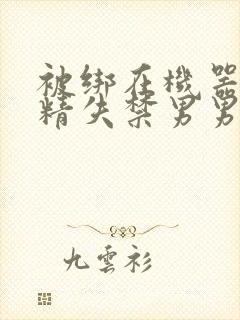 被绑在機器
精失禁男男
九雲衫